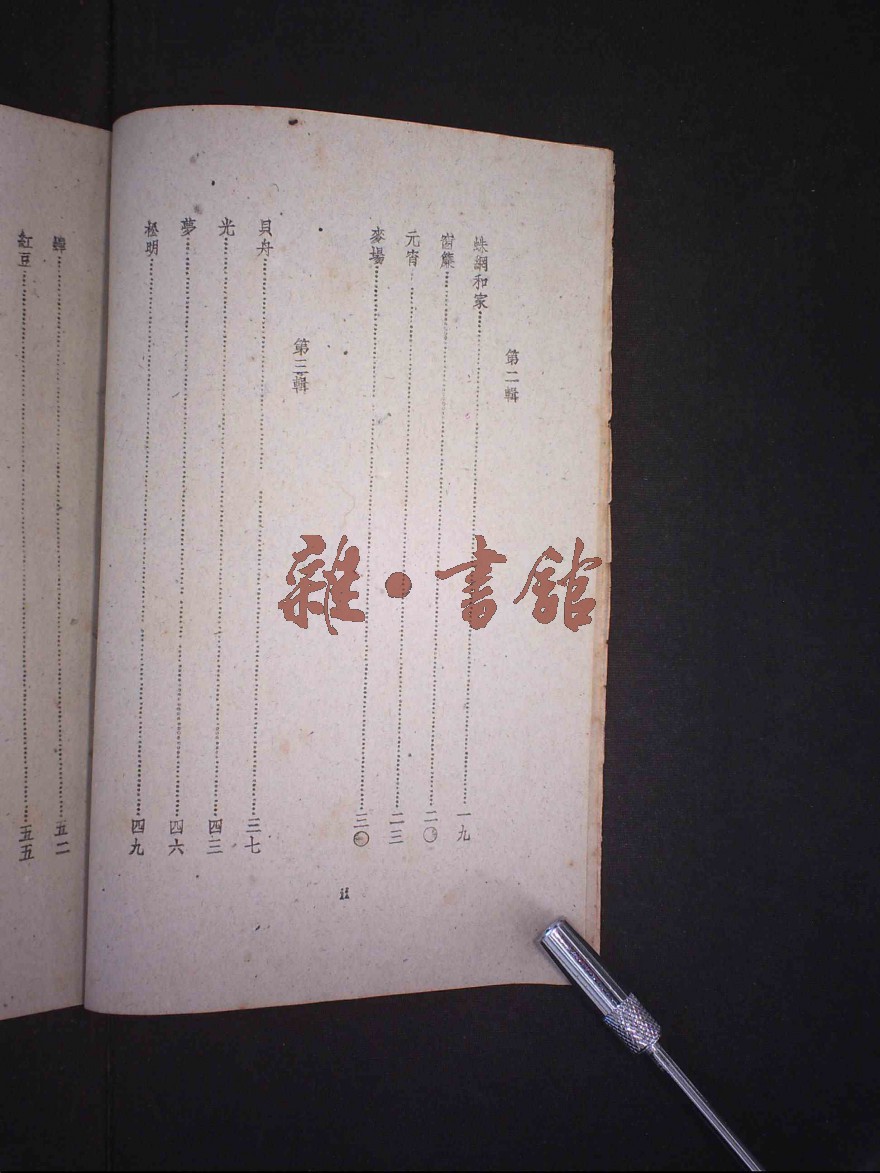 第二輯
蛛網和家……一九
窗簾……二〇
元宵……二三
麥場……三〇
第三輯
貝舟……三七
光……四三
夢……四六
松明……四九
ii
……五二
紅豆……五五
雜·書館